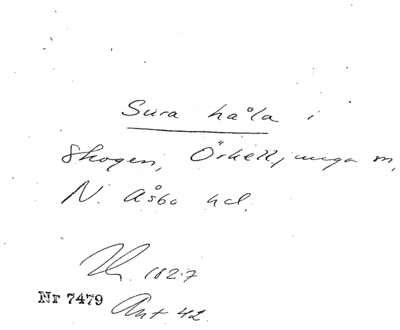 Sura håla i
Skogen, Örkelljunga m,
N. Åsbo hd.
1827
Nr 7479
Ant. 42.